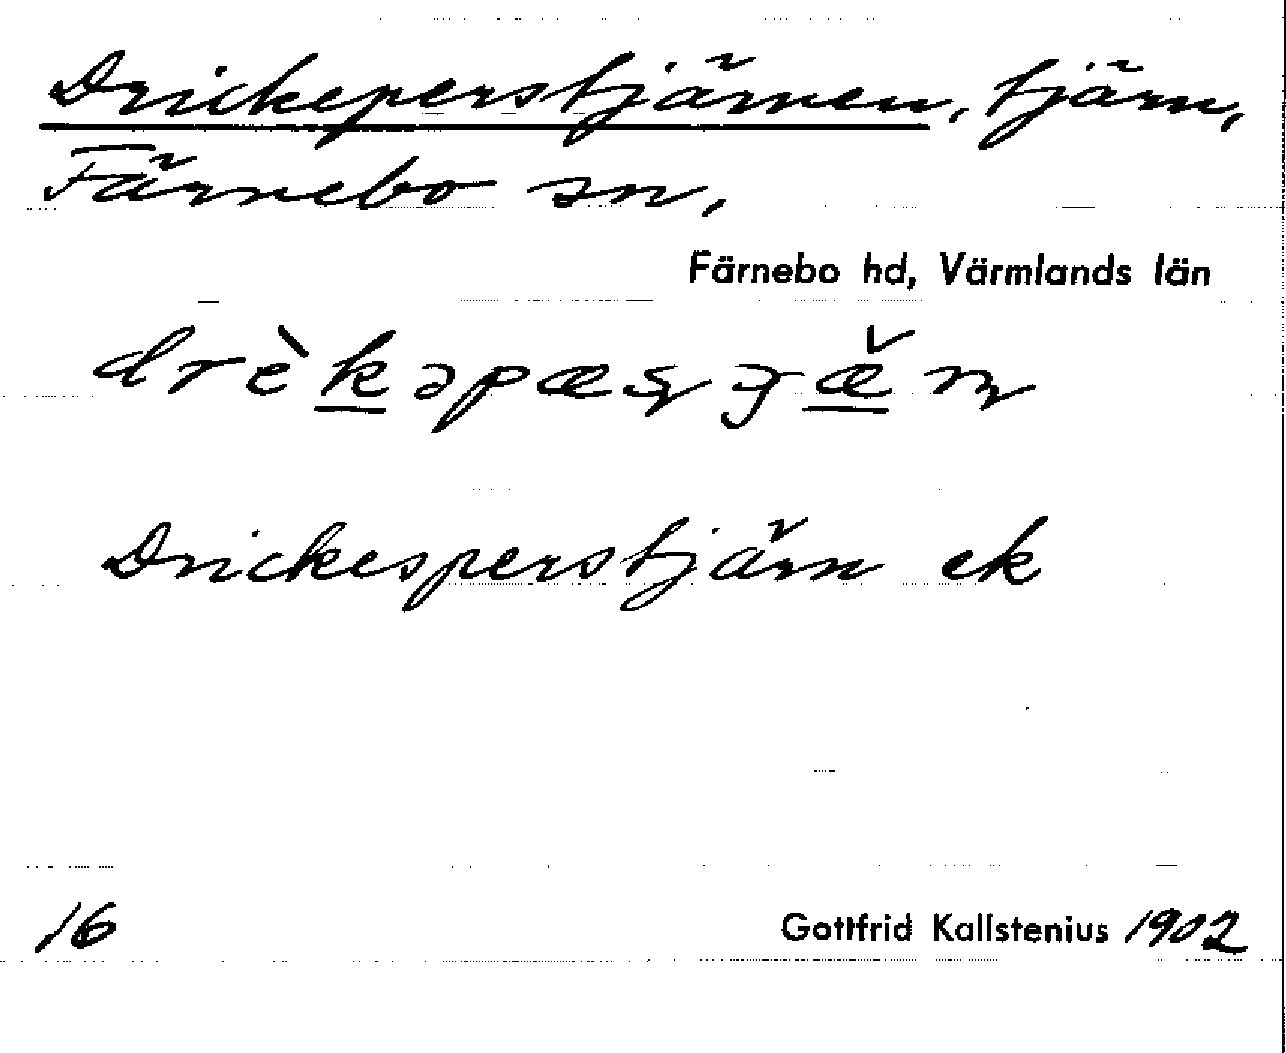 Drickeperstjärnen, tjärn,
Färnebo sn,
Färnebo hd, Värmlands län
Drickesperstjärn ek
16
Gottfrid Kallstenius 1902